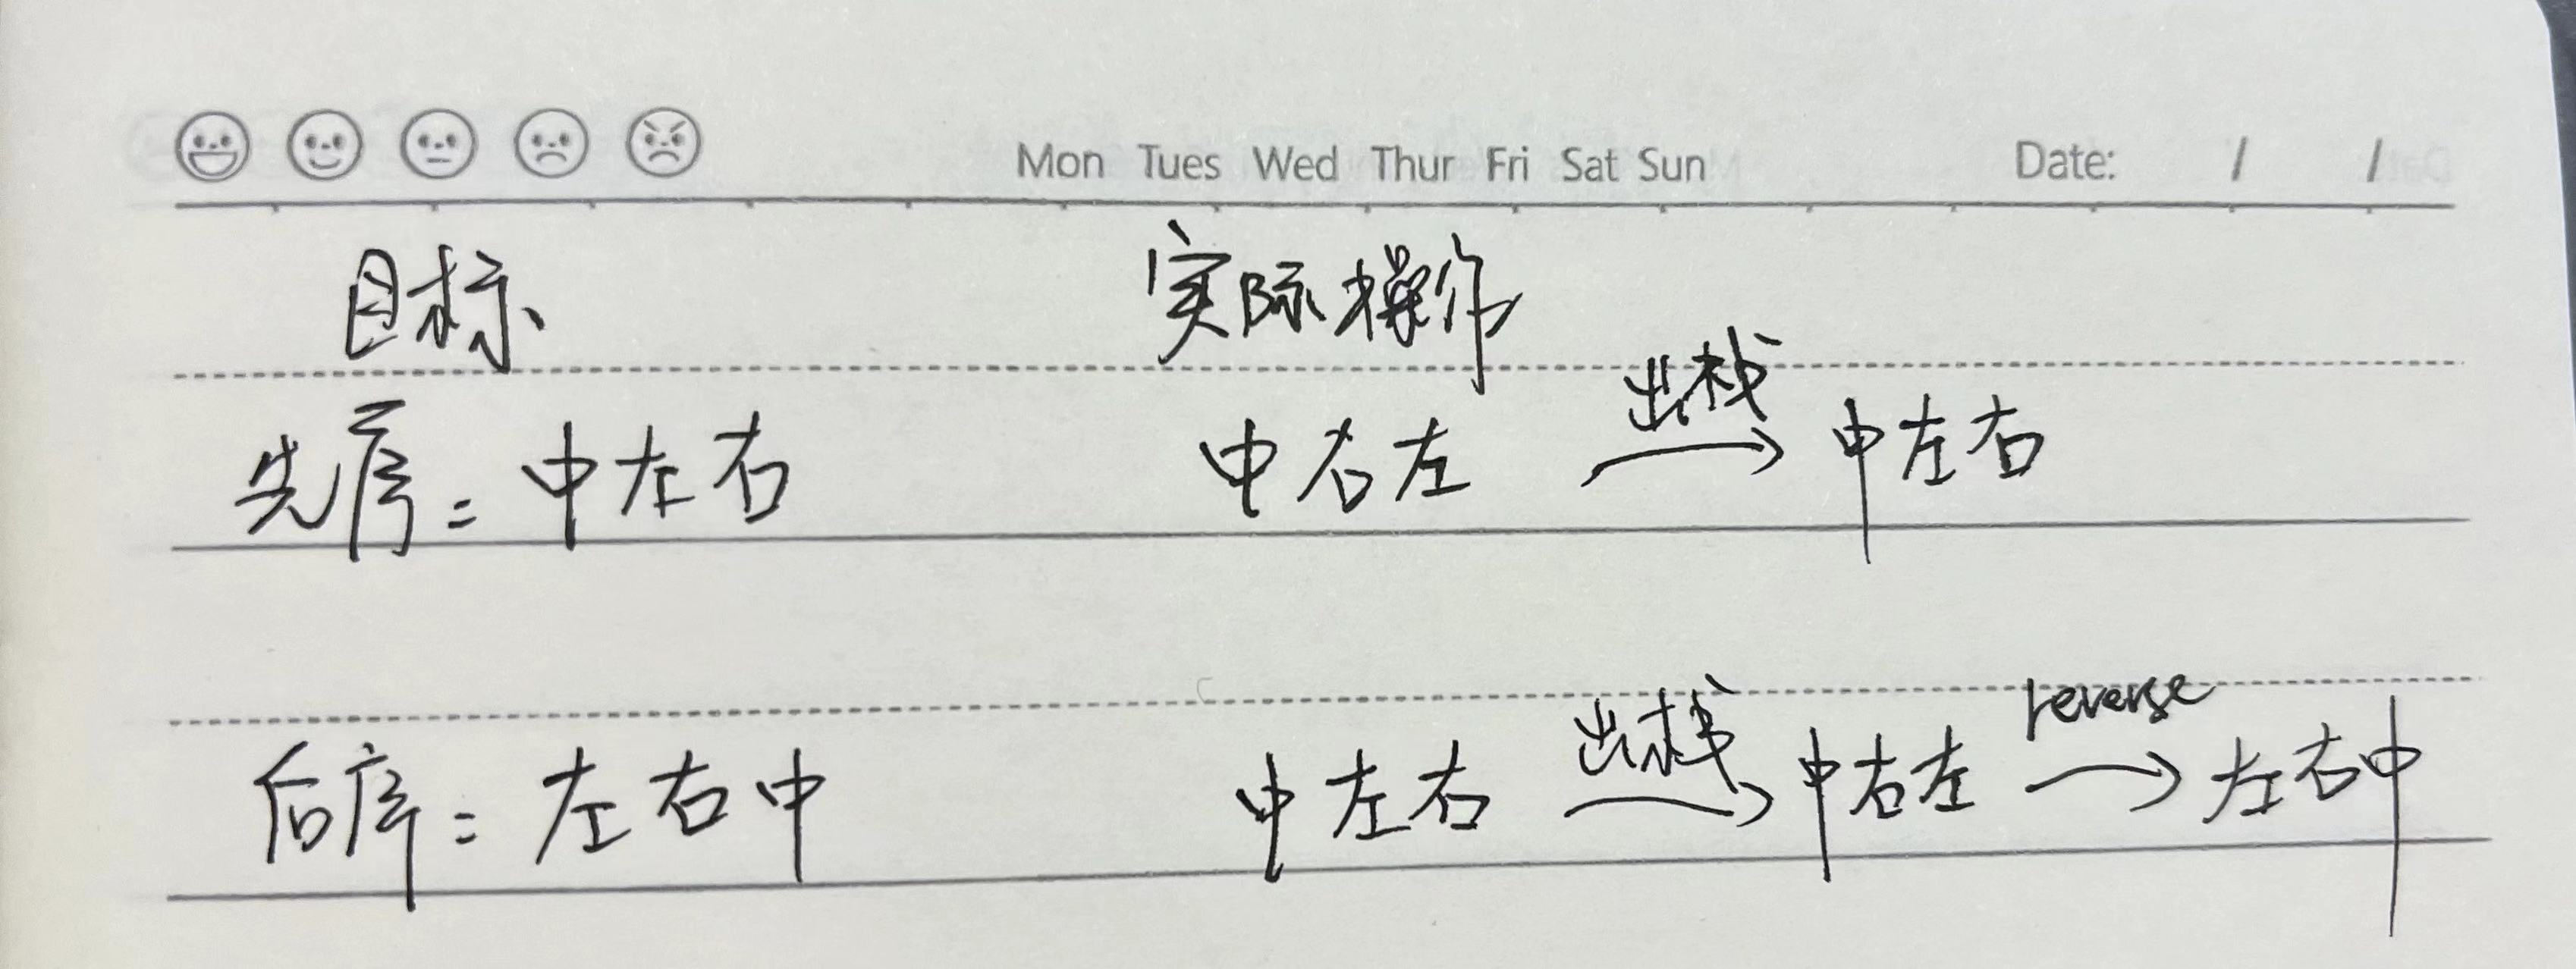 Mon Tues Wed Thur Fri Sat Sun Date: / /
目标 实际操作
先序: 中左右 中右左 出栈 → 中左右
后序: 左右中 中左右 出栈 → 中右左 reverse → 左右中